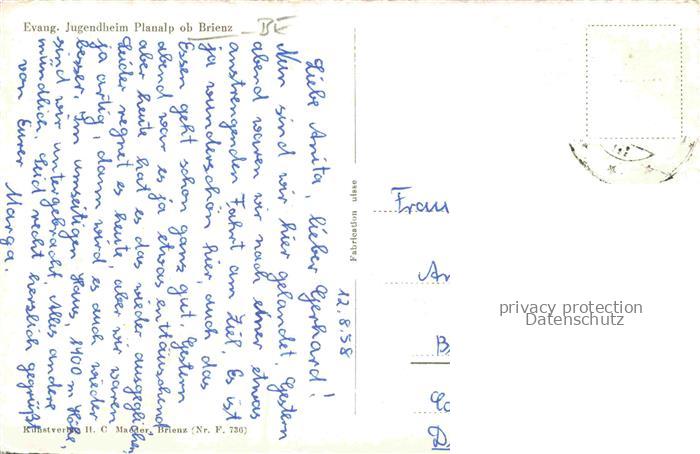 Evang. Jugendheim Planalp ob Brienz BE
12.8.58
Liebe Anita, lieber Gerhard!
Nun sind wir hier gelandet. Gestern
abend waren wir nach einer etwas
anstrengenden Fahrt am Ziel. Es ist
ja wunderschön hier, auch das
Essen geht schon ganz gut. Gestern
abend war es ja etwas enttäuschend
aber heute hat es das wieder ausgeglichen,
Leider regnet es heute, aber wir waren
ja artig, dann wird es auch wieder
besser. Im umseitigen Haus, 1400 m Höhe,
sind wir untergebracht. Alles andere
mündlich. Seid recht herzlich gegrüßt
von Eurer
Marga.
Kunstverlag H. C. Maeder, Brienz (Nr. F. 736)
Fabrication suisse
Frau
An
B
privacy protection
Datenschutz